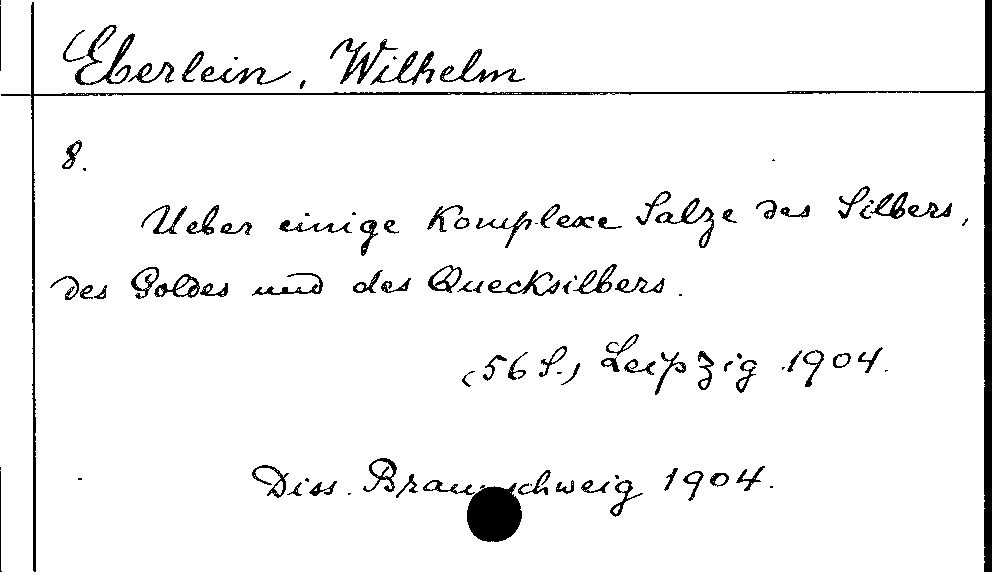 Eberlein, Wilhelm
8.
Ueber einige Komplexe Salze des Silbers,
des Goldes und des Quecksilbers.
(56 S.) Leipzig 1904.
Diss. Braunschweig 1904.